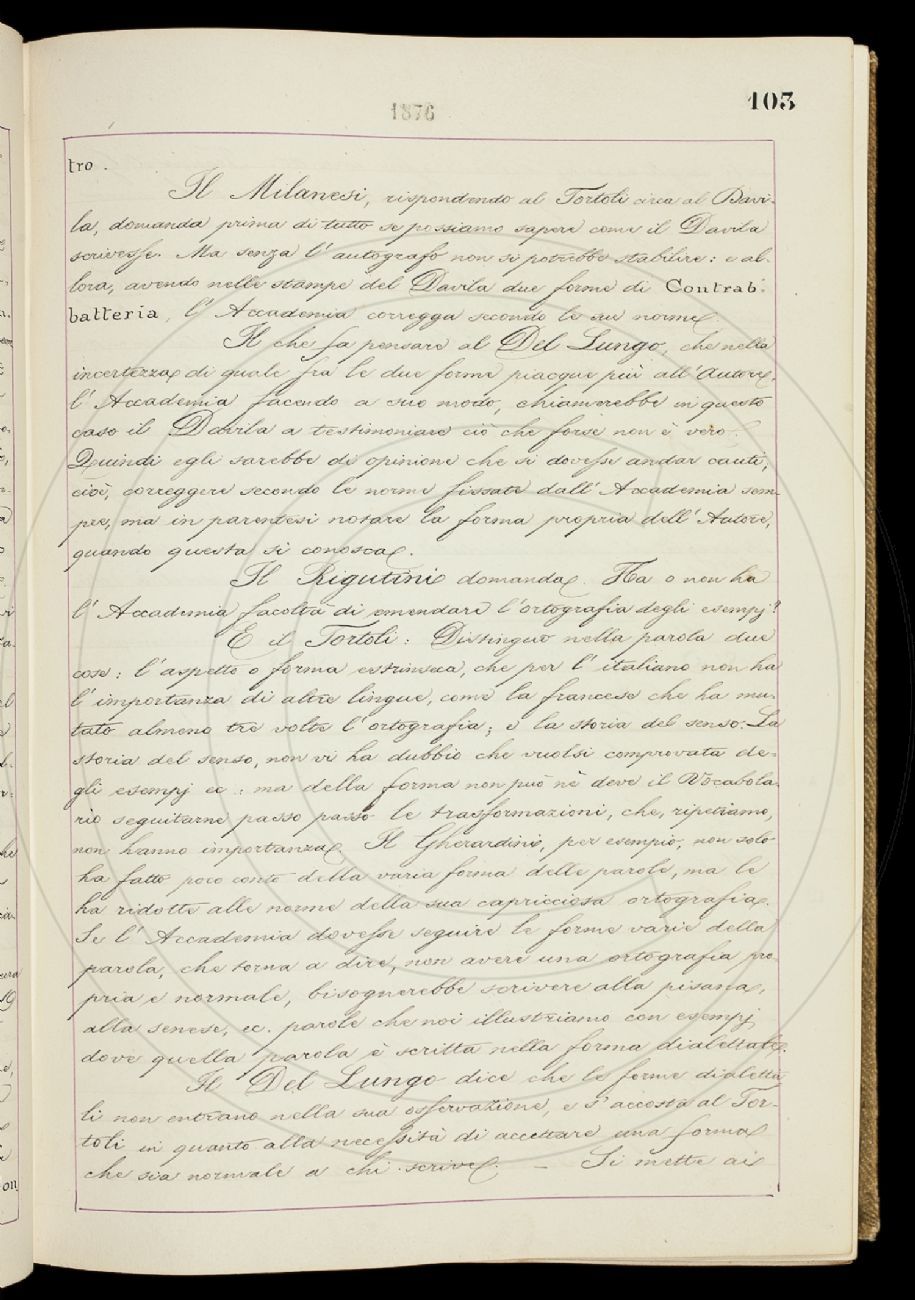 1876
103
tro.
Il Milanesi, rispondendo al Tortoli circa al Davi-
la, domanda prima di tutto se possiamo sapere come il Davila
scrivesse. Ma senza l'autografo non si potrebbe stabilire: e al-
lora, avendo nelle stampe del Davila due forme di Contrab-
batteria, l'Accademia corregga secondo le sue norme.
Il che fa pensare al Del Lungo, che nella
incertezza di quale fra le due forme piacque più all'Autore,
l'Accademia facendo a suo modo, chiamerebbe in questo
caso il Davila a testimoniare ciò che forse non è vero.
Quindi egli sarebbe di opinione che si dovesse andar cauti,
cioè, correggere secondo le norme fissate dall'Accademia sem-
pre, ma in parentesi notare la forma propria dell'Autore,
quando questa si conosca.
Il Rigutini domanda. Ha o non ha
l'Accademia facoltà di emendare l'ortografia degli esempj?
E il Tortoli: Distinguo nella parola due
cose: l'aspetto o forma estrinseca, che per l'italiano non ha
l'importanza di altre lingue, come la francese che ha mu-
tato almeno tre volte l'ortografia; e la storia del senso. La
storia del senso, non vi ha dubbio che vuolsi comprovata de-
gli esempj ec.: ma della forma non può nè deve il Vocabola-
rio seguitarne passo passo le trasformazioni, che, ripetiamo,
non hanno importanza. Il Gherardini, per esempio, non solo
ha fatto poco conto della varia forma delle parole, ma le
ha ridotte alle norme della sua capricciosa ortografia.
Se l'Accademia dovesse seguire le forme varie della
parola, che torna a dire, non avere una ortografia pro-
pria e normale, bisognerebbe scrivere alla pisana,
alla senese, ec. parole che noi illustriamo con esempj
dove quella parola è scritta nella forma dialettale.
Il Del Lungo dice che le forme dialetta-
li non entrano nella sua osservazione, e s'accosta al Tor-
toli in quanto alla necessità di accettare una forma
che sia normale a chi scrive. — Si mette ai